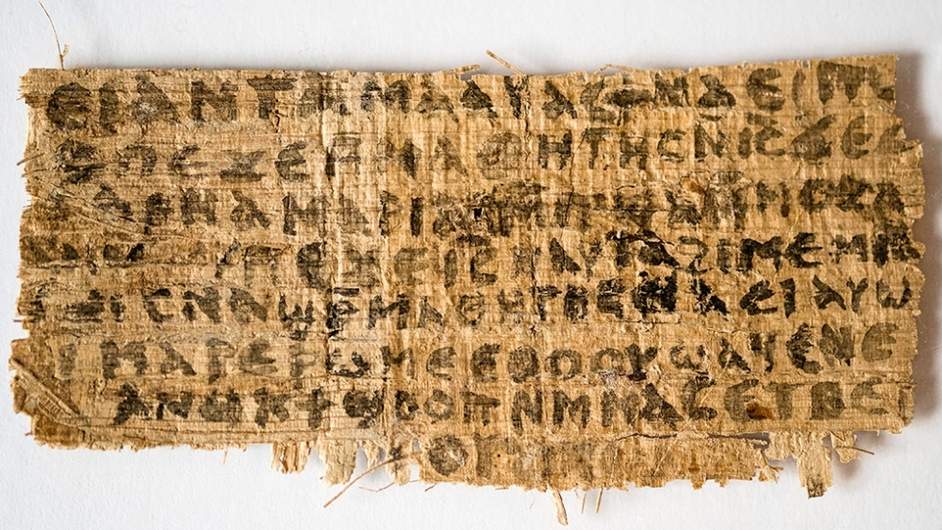 ⲉⲓ ⲁⲛ ⲧⲁⲙⲁⲁⲩ ⲁⲥϯ ⲛⲁⲉⲓ ⲡⲱ
ⲡⲉϫⲉ ⲙⲙⲁⲑⲏⲧⲏⲥ ⲛⲓⲥ ϫⲉ ⲥ
ⲁⲣⲛⲁ ⲙⲁⲣⲓⲁⲙ ⲙⲡϣⲁ ⲙⲙⲟⲥ ⲁ
ⲡⲉϫⲉ ⲓⲥ ⲛⲁⲩ ⲧⲁϩⲓⲙⲉ ⲙⲛ
ⲥⲛⲁϣⲣⲙⲁⲑⲏⲧⲏⲥ ⲛⲁⲉⲓ ⲁⲩⲱ
ⲙⲁⲣⲉⲣⲱⲙⲉ ⲉⲑⲟⲟⲩ ϣⲁϥⲉ ⲛⲉ
ⲁⲛⲟⲕ ϯϣⲟⲟⲡ ⲛⲙⲙⲁⲥ ⲉⲧⲃⲉ